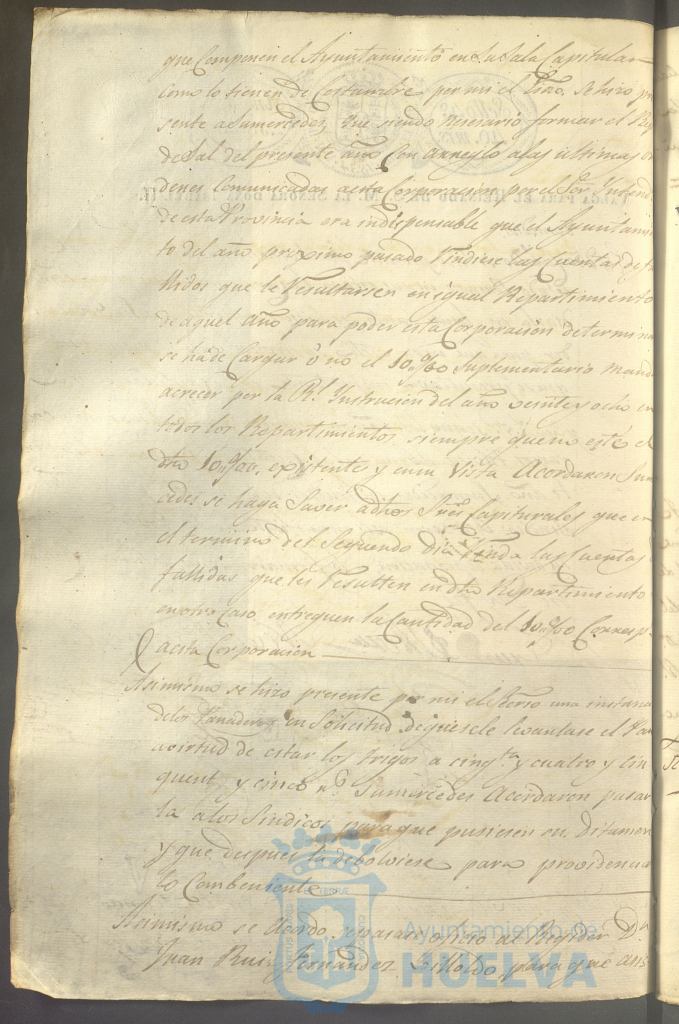 que Componen el Ayuntamiento en su Sala Capitular
como lo tienen de Costumbre por mi el Esno. se hizo pre
sente a Sumercedes, que siendo nesesario formar el Rep
de Sal del presente año con arreglo a las ultimas or
denes comunicadas a esta Corporacion por el Sor. Yntend
de esta Provincia era indispensable que el Ayuntamien
to del año proximo pasado rindiese las Cuentas de fa
llidos que le resultasen en igual Repartimiento
de aquel Año para poder esta Corporacion determinar
se ha de Cargar ó no el 10 p% Suplementario mand
acrecer por la Rl. Ynstrucion del año veinte y ocho en
todos los Repartimientos siempre que no esté el
dho 10 p%, existente y en su Vista Acordaron Sum
cedes se haga Saver a dhos Sres Capitulares que en
el termino del Segundo dia rinda las Cuentas
fallidas que les resulten en dho Repartimiento
en otro Caso entreguen la Cantidad del 10 p% Corresp
a esta Corporacion
Asimismo se hizo presente por mi el Esno una instan
de los Panaderos en Solicitud de que se le levantase el Pan
a virtud de estar los trigos a cinqta. y cuatro y cin
quenta y cinco rs. Sumercedes Acordaron pasar
la a los Sindicos para que pusiesen su Ditamen
y que despues la debolviese para providenciar
lo Combeniente
Asimismo se Acordo se pasase oficio al Regidor Dn
Juan Ruiz Fernandez para que
Ayuntamiento de
HUELVA